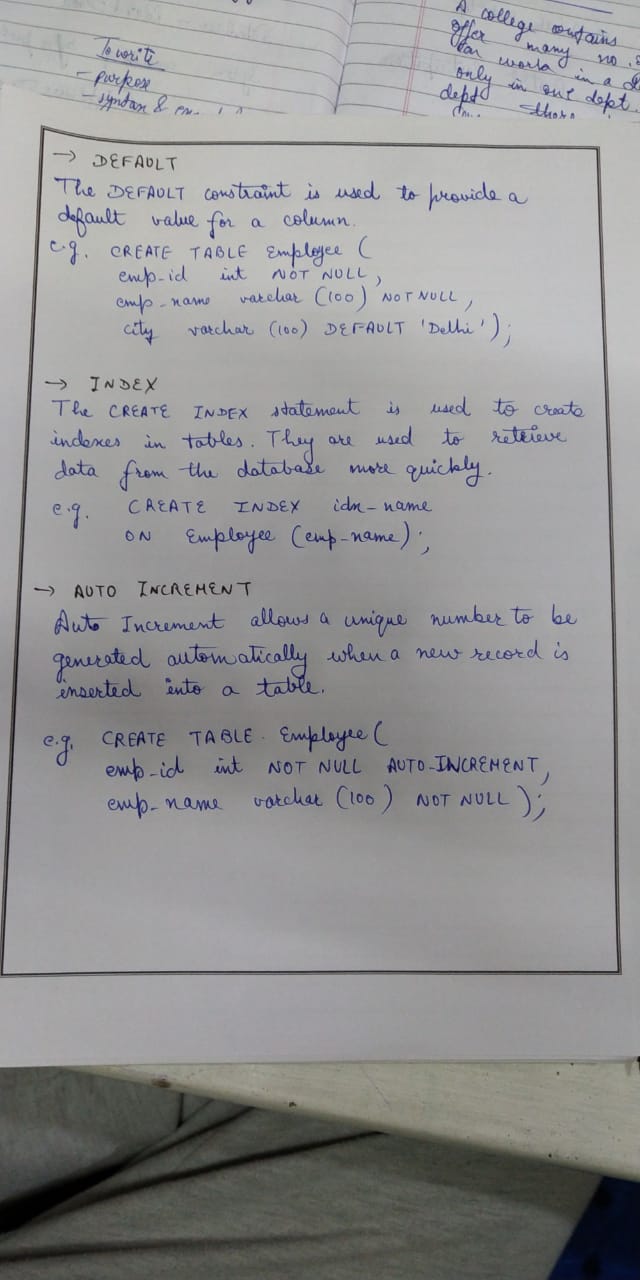 To write
- purpose
- syntax &
A college contains
offer many no.
can work in a
only in one dept.
dept
→ DEFAULT
The DEFAULT constraint is used to provide a
default value for a column.
e.g. CREATE TABLE Employee (
emp-id int NOT NULL,
emp-name varchar (100) NOT NULL,
city varchar (100) DEFAULT 'Delhi');
→ INDEX
The CREATE INDEX statement is used to create
indexes in tables. They are used to retrieve
data from the database more quickly.
e.g. CREATE INDEX idx-name
ON Employee (emp-name);
→ AUTO INCREMENT
Auto Increment allows a unique number to be
generated automatically when a new record is
inserted into a table.
e.g. CREATE TABLE Employee (
emp-id int NOT NULL AUTO-INCREMENT,
emp-name varchar (100) NOT NULL );